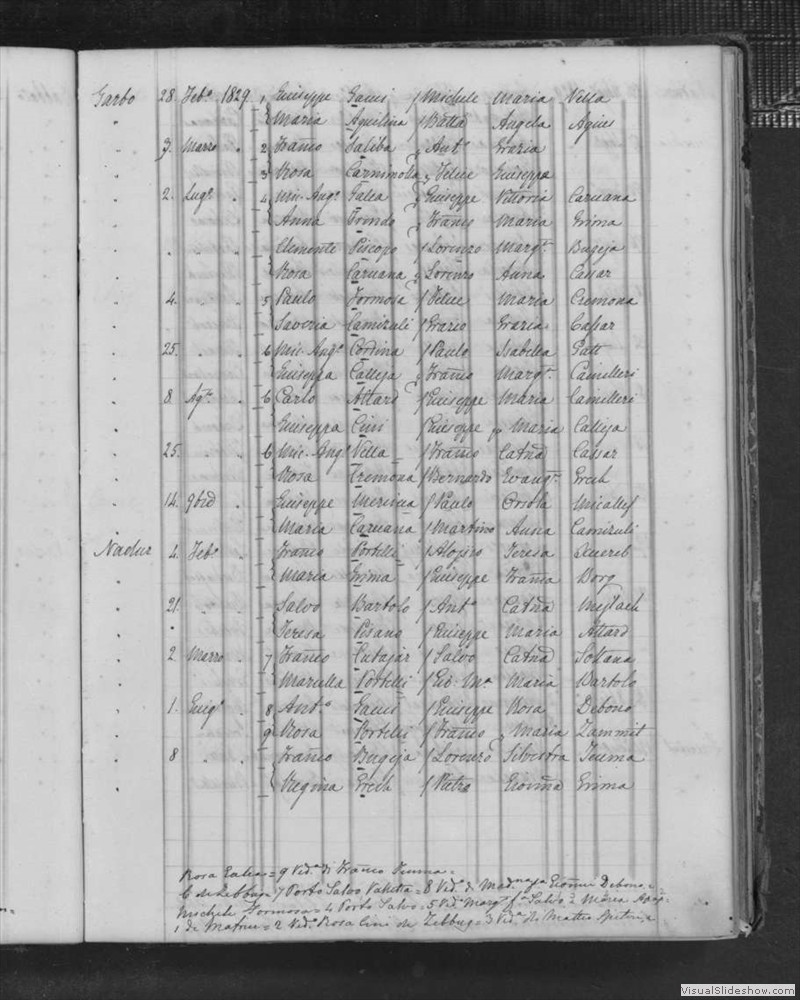 Garbo 28. Feb.º 1829. 1 Giuseppe Gauci / Michele Maria Vella
" { Maria Aquilina / Batta Angela Agius
" 3. Marzo . 2 Franc̃o Saliba / Ant.º Grazia
" 3 Rosa Carnimolla / Felice Giuseppa
" 2. Lug.º . 4 Mic. Ang.º Galea / Giuseppe Vittoria Caruana
" Anna / Franc̃o Maria Grima
" " " . Clemente Piscopo / Lorenzo Marg.ta Bugeja
" Rosa Caruana / Lorenzo Anna Cassar
" 4. " . 5 Paulo Formosa / Felice Maria Cremona
" Saveria Camizuli / Grazio Grazia Cassar
" 25. " . 6 Mic. Ang.º Cordina / Paulo Isabella Gatt
" Giuseppa Calleja / Franc̃o Marg.ta Camilleri
" 8. Ag.to . 6 Carlo Attard / Giuseppe Maria Camilleri
" Giuseppa Cini / Giuseppe Maria Calleja
" 25. " . 6 Mic. Ang.º Vella / Franc̃o Catñа Cassar
" Rosa Cremona / Bernardo Evang.ta Grech
" 14. 9bre . Giuseppe Mercieca / Paulo Orsola Micallef
" Maria Caruana / Martino Anna Camizuli
Nadur 4. Feb.º . Franc̃o Portelli / Alojsio Teresa
" Maria Grima / Giuseppe Franc̃a Borg
" 21. " . Salvo Bartolo / Ant.º Catñа Mejlach
" Teresa Pisano / Giuseppe Maria Attard
" 2. Marzo . 7 Franc̃o Cutajar / Salvo Catñа Soltana
" Marella Portelli / Gio. M.ª Maria Bartolo
" 1. Giug.º . 8 Ant.º Gauci / Giuseppe Rosa Debono
" 9 Rosa Portelli / Franc̃o Maria Zammit
" 8 " . Franc̃o Bugeja / Lorenzo Silvestra Teuma
" Regina Grech / Pietro Giovñа Grima
Rosa Galea = 9 Vid.ª di Franc̃o Teuma =
6 di Zebbug = 7 Porto Salvo Valletta = 8 Vid.º di Debono =
Michele Formosa = 4 Porto Salvo = 5 Vid.º Marg.ta f.ª Salvo Maria
1 di = 2 Vid.º Rosa Cini di Zebbug = 3 Vid.ª di Matteo Spiteri =
VisualSlideshow.com